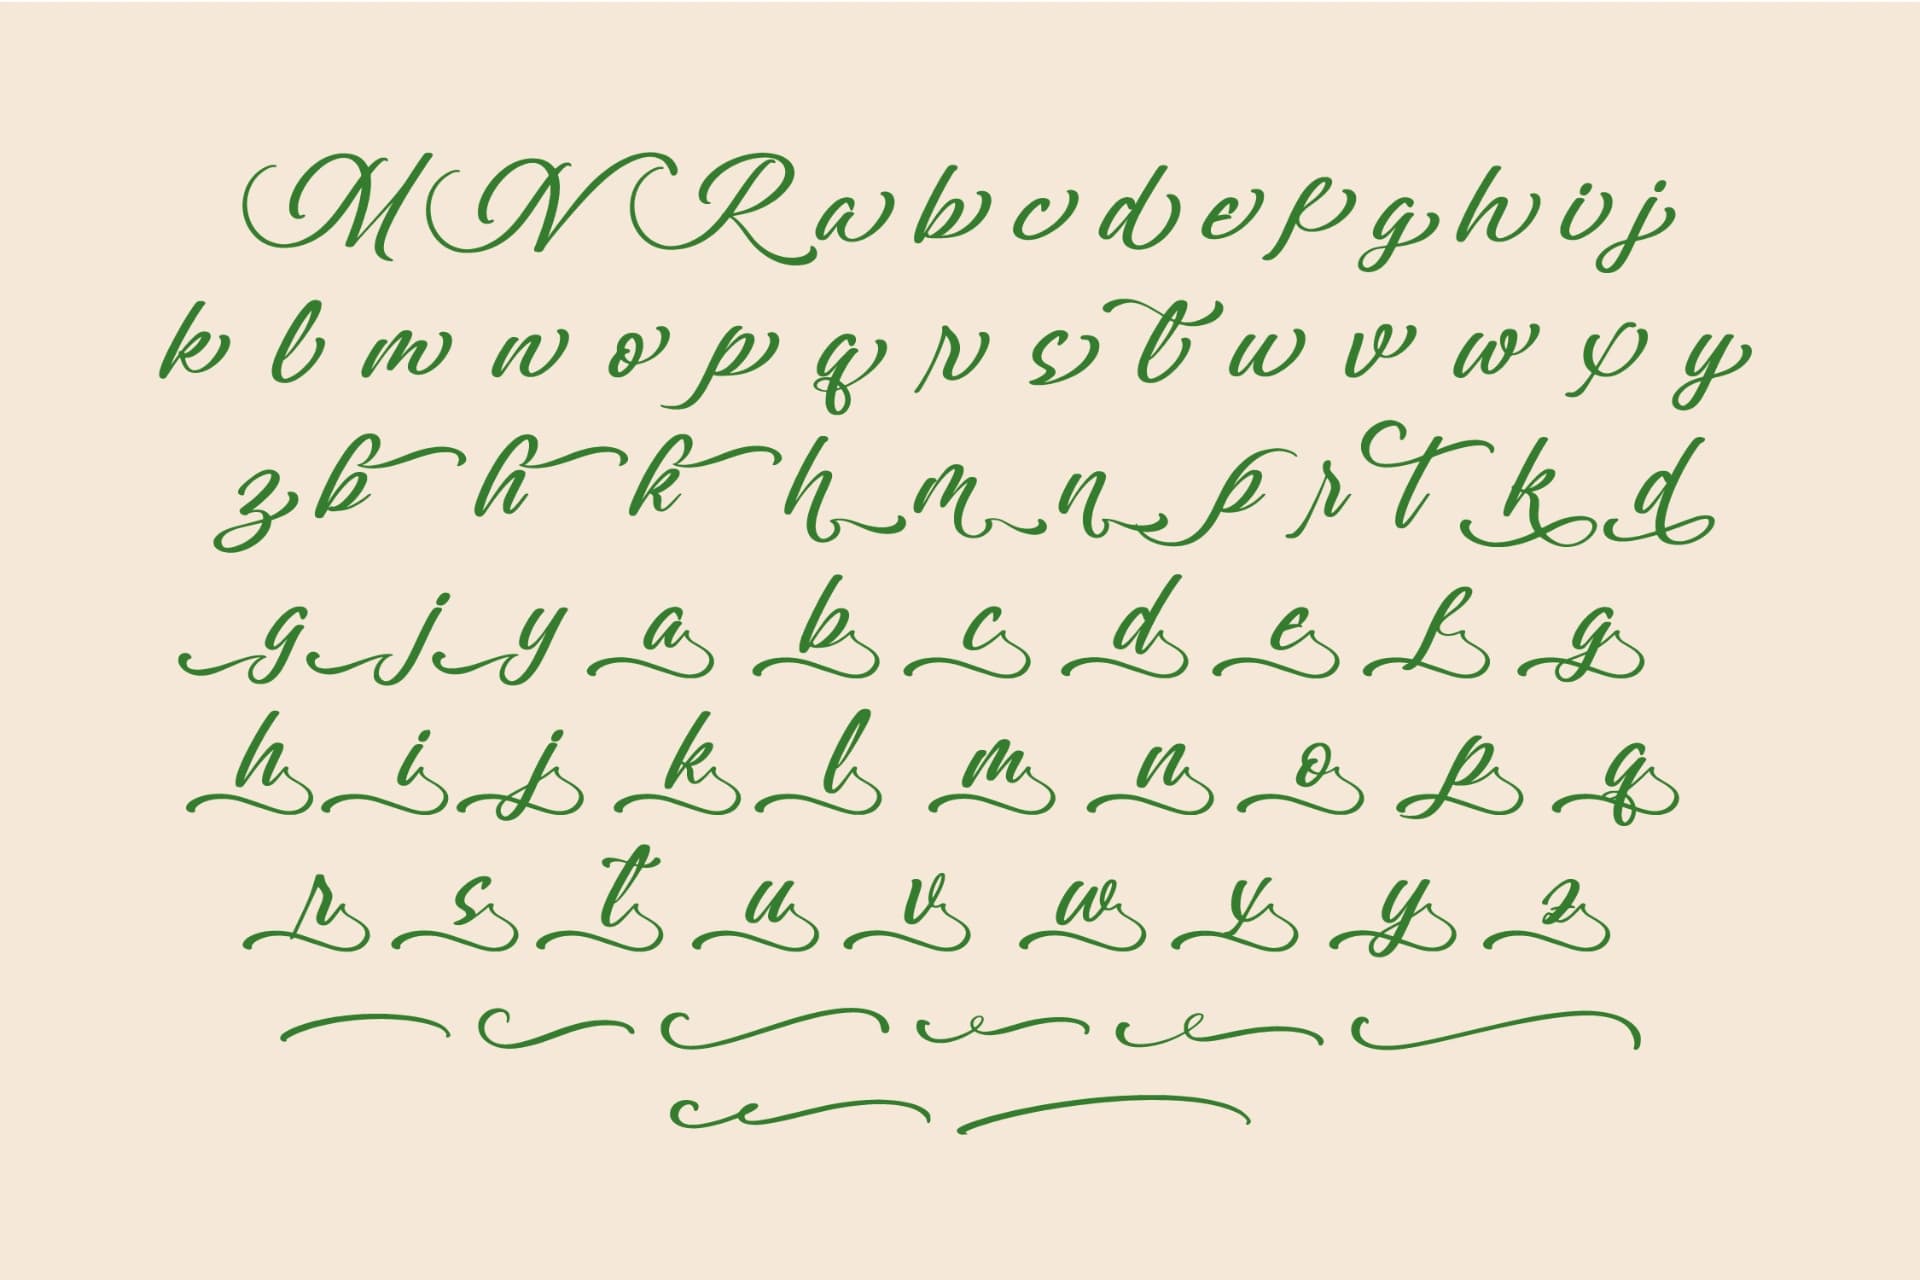 M N R a b c d e f g h i j
k l m n o p q r s t u v w x y
z b h k h m n p r t k d
g j y a b c d e f g
h i j k l m n o p q
r s t u v w x y z